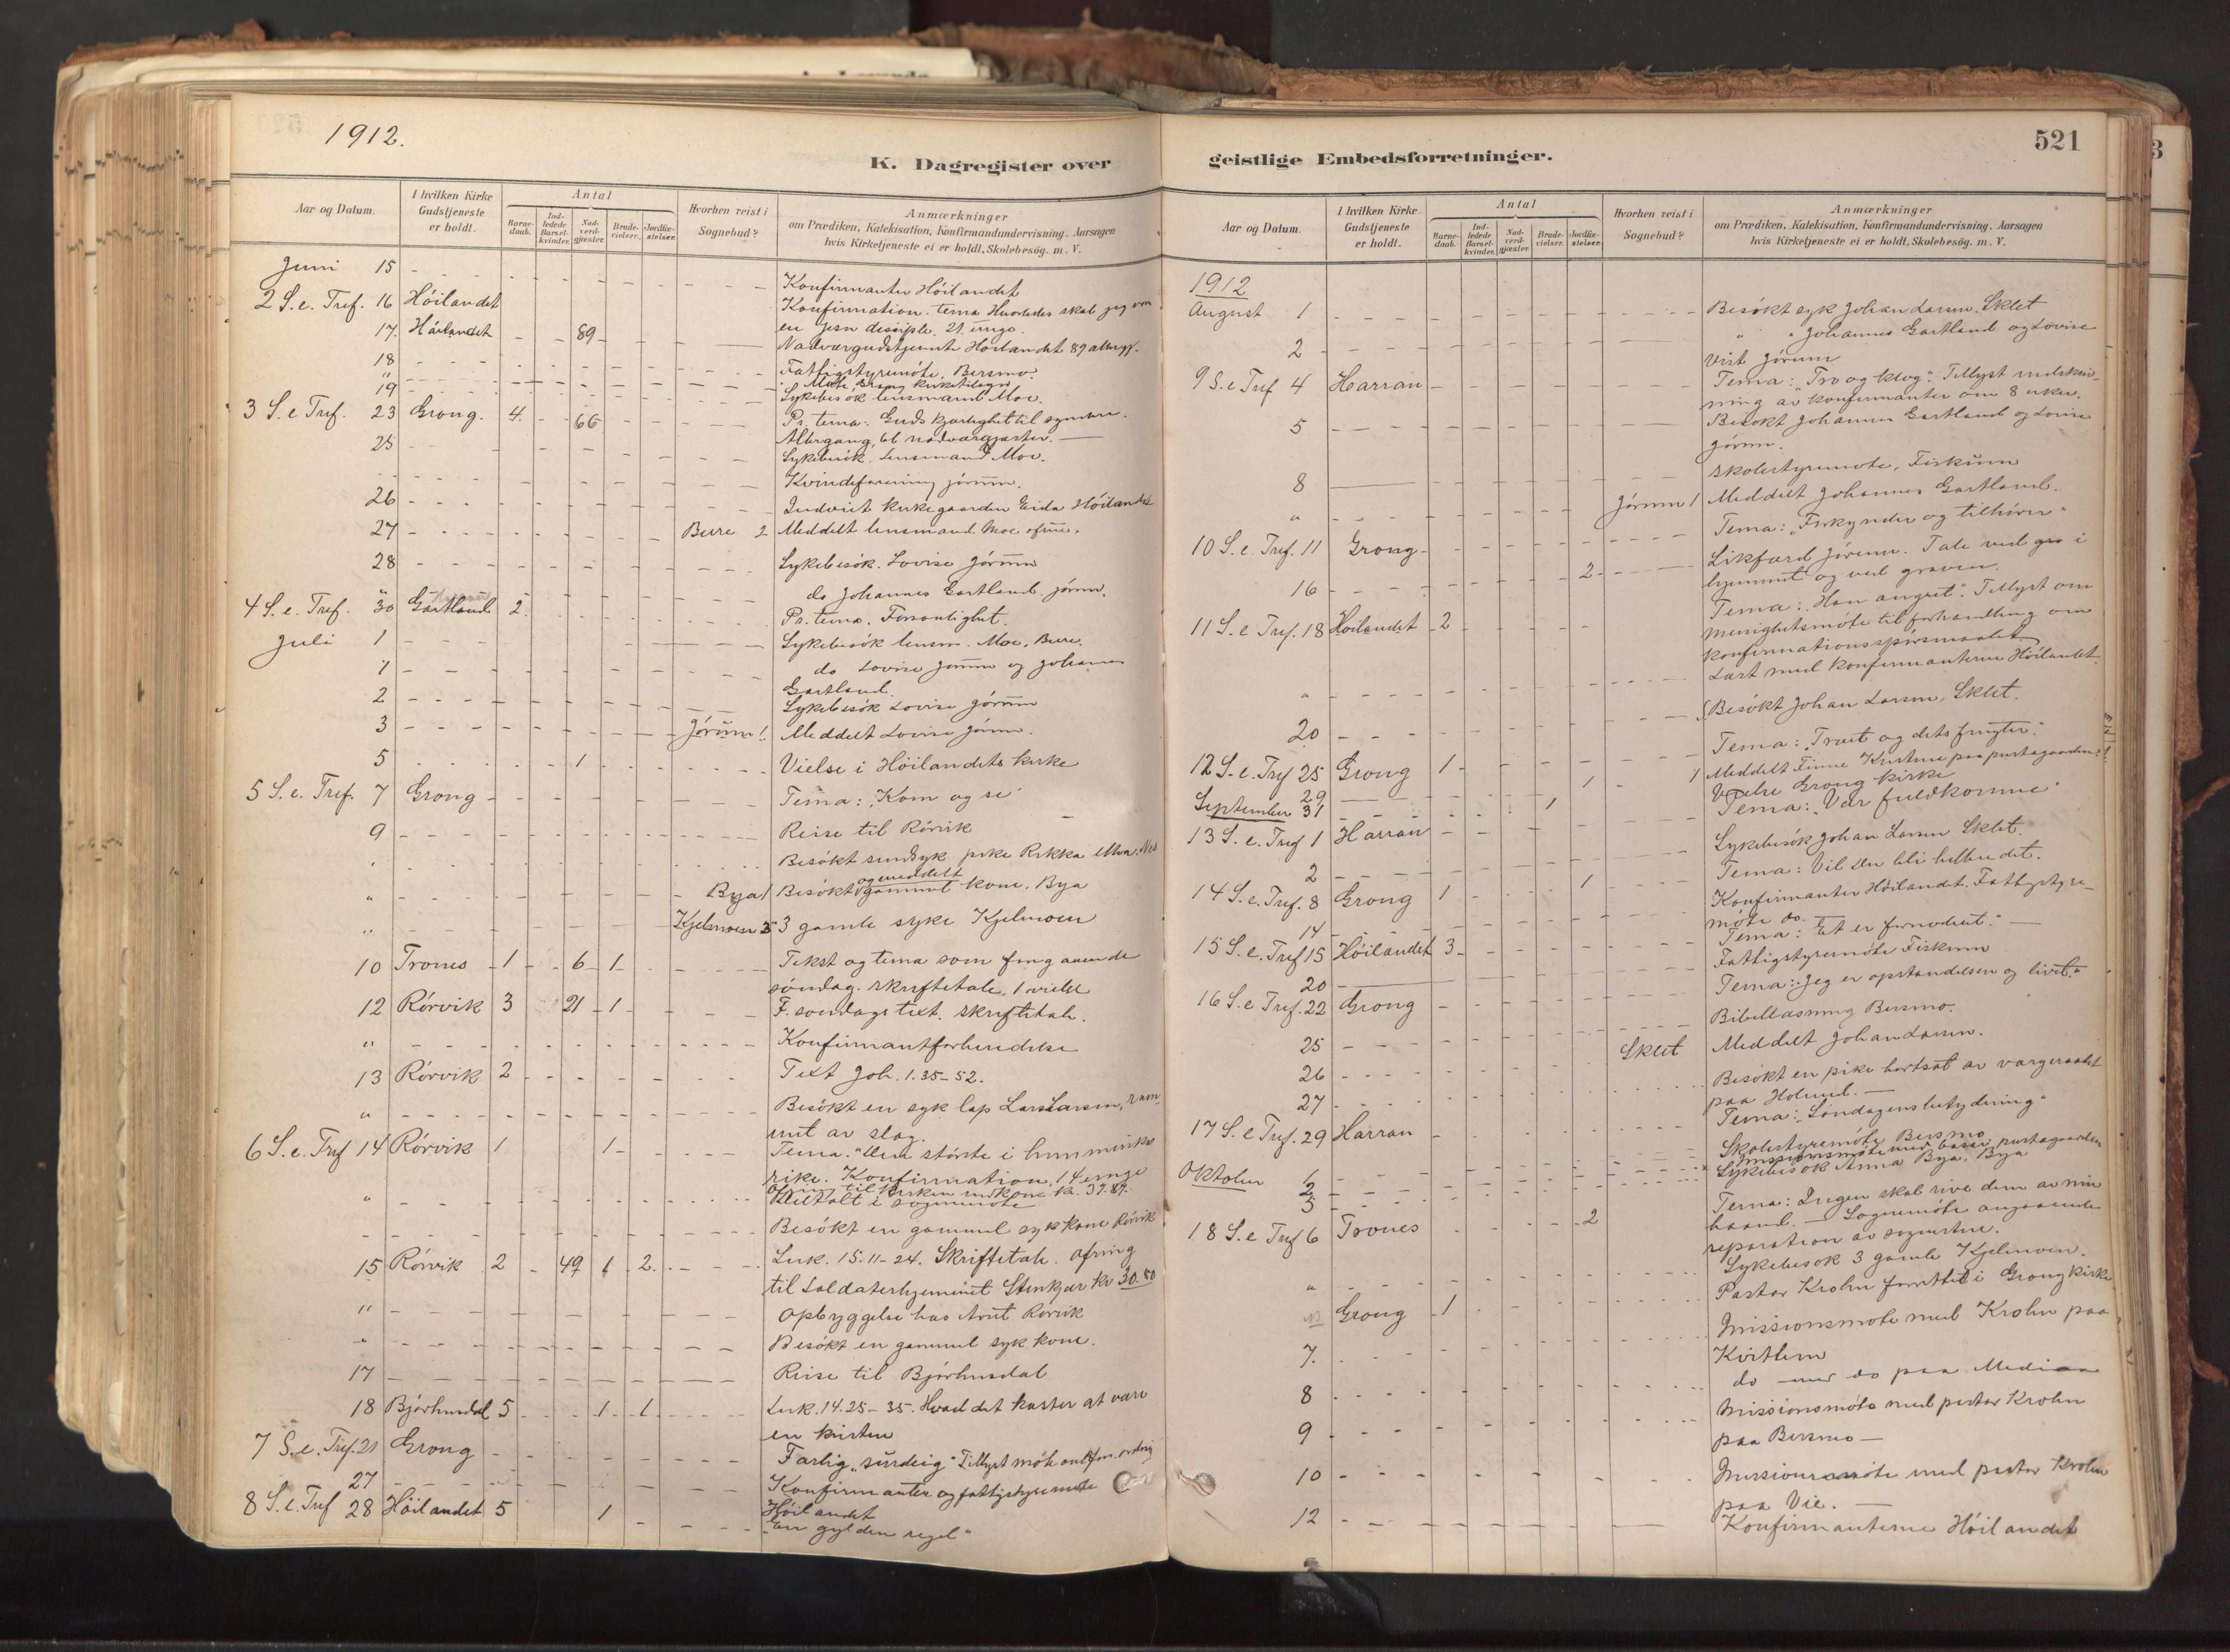 1912.
K. Dagregister over
Aar og Datum.
I hvilken Kirke Gudstjeneste er holdt.
Antal
Barne-daab.
Ind-ledede Barsel-kvinder.
Nad-verd-gjæster.
Brude-vielser.
Jordfæ-stelser.
Hvorhen reist i Sognebud?
Anmærkninger
om Prædiken, Katekisation, Konfirmandundervisning. Aarsagen
hvis Kirketjeneste ei er holdt, Skolebesøg. m. V.
Juni 15 Konfirmanter Höilandet
2 S. e. Tref. 16 Höilandet Konfirmation. tema Hvorledes skal jeg
en Jesu discipler. 21 unge.
17. Höilandet 89 Nadvergudstjeneste Höilandet 89
18 Fattigstyremöte, Bersmo.
" Möte
19 Sykebesök lensmand Moe.
3 S. e Tref. 23 Grong. 4. 66 Pr. tema: Guds kjærlighet til syndere.
Altergang, 66 nadværgjæster. —
25 Sykebesök. Lensmand Moe.
Kvindeforening Jörum.
26 Indviet kirkegaarden Eida Höilandet
27 Bure 2 Meddelt lensmand Moe
28 Sykebesök. Lovise Jörum
" do Johannes Gartland Jörum.
4 S. e. Tref. 30 Gartland 2. Pr. tema. Forsonlighet.
Juli 1 Sykebesök lensm. Moe, Bure.
1 do Lovise Jörum og Johannes
Gartland.
2 Sykebesök Lovise Jörum
3 Jörum 1. Meddelt Lovise Jörum.
5 1 Vielse i Höilandets kirke
5 S. e. Tref. 7 Grong Tema: "Kom og se"
9 Reise til Rörvik
Besökt sindsyk pike Rikka
" Bya 1 Besökt og meddelt gammel kone. Bya
" Kjelmoen 3 3 gamle syke Kjelmoen
10 Trones 1 6 1 Tekst og tema som foregaaende
söndag. Skriftetale, 1 vielse
12 Rörvik 3 21 1 F. söndags text. Skriftetale.
" Konfirmantforberedelse
13 Rörvik 2 Text Joh. 1.35-52.
" Besökt en syk lap Lars Larsen, ram-
met av slag.
6 S. e. Tref 14 Rörvik 1 1 Tema: "Den störste i himmerikes
rike. Konfirmation, 14 unge
Ofring til kirken indkom kr. 37.87.
" Deltatt i sognemöte
Besökt en gammel syk kone Rörvik
15 Rörvik 2 49 1 2. Luk. 15.11-24. Skriftetale. Ofring
til Soldaterhjemmet Stenkjær kr 30.80
" Opbyggelse hos Rörvik
" Besökt en gammel syk kone.
17 Reise til Björhusdal
18 Björhusdal 5 1 1 Luk. 14.25-35. Hvad det koster at være
en kristen
7 S. e. Tref. 21 Grong Farlig "surdeig" Tillyst möte
27 Konfirmanter og fattigstyremöte
Höilandet
8 S. e. Tref 28 Höilandet 5 1 "En gylden regel"
521
geistlige Embedsforretninger.
Aar og Datum.
I hvilken Kirke Gudstjeneste er holdt.
Antal
Barne-daab.
Ind-ledede Barsel-kvinder.
Nad-verd-gjæster
Brude-vielser.
Jordfæ-stelser.
Hvorhen reist i Sognebud?
Anmærkninger
om Prædiken, Katekisation, Konfirmandundervisning. Aarsagen
hvis Kirketjeneste ei er holdt, Skolebesøg. m. V.
1912
August 1 Besökt syk Johan Larsen, Sklet
2 " " Johannes Gartland og Lovise
Jörum
9 S. e Tref 4 Harran Tema: "Tro og klog". Tillyst indskriv-
ning av konfirmanter om 8 uker.
5 Besökt Johannes Gartland og Lovise
Jörum.
8 Skolestyremöte, Fiskum
" Jörum 1 Meddelt Johannes Gartland.
10 S. e. Tref. 11 Grong Tema: "Forkynder og tilhörer"
16 2 Likfærd Jörum. Tale ved i
hjemmet og ved graven.
11 S. e Tref. 18 Höilandet 2 Tema: "Han angret". Tillyst om
menighetsmöte til forhandling om
konfirmationsspörsmaalet.
" Læst med konfirmanterne Höilandet.
20 Besökt Johan Larsen, Sklet.
12 S. e. Tref 25 Grong 1 Tema: "Troet og dets frugter".
29 1 1 Meddelt Finne Kristine paa prestegaarden
31 1 Vielse Grong kirke
September
13 S. e. Tref 1 Harran Tema: "Vær fuldkomne"
2 Sykebesök Johan Larsen Sklet.
14 S. e. Tref. 8 Grong 1 1 Tema: Vil du bli helbredet.
14 Konfirmanter Höilandet. Fattigstyre-
möte do. —
15 S. e. Tref 15 Höilandet 3 Tema: "Et er fornödent." —
20 Fattigstyremöte Fiskum
16 S. e Tref. 22 Grong Tema: "Jeg er opstandelsen og livet."
25 Bibellæsning Bersmo.
26 Sklet Meddelt Johan Larsen.
27 Besökt en pike bortsat av vergeraadet
paa Holand. —
17 S. e Tref. 29 Harran Tema: "Söndagens betydning"
Oktober 1 Skolestyremöte Bersmo
2 Missionsmöte med prestegaarden
3 Sykebesök Anna Bya, Bya
18 S. e Tref 6 Trones 2 Tema: Ingen skal rive dem av min
haand. — Sognemöte angaaende
reparation av
" Sykebesök 3 gamle Kjelmoen.
Grong 1 Pastor Krohn forrettet i Grong kirke
7. Missionsmöte med Krohn paa
8 do med do paa
9 Missionsmöte med pastor Krohn
paa Bersmo —
10 Missionsmöte med pastor Krohn
paa Vie. —
12 Konfirmanterne Höilandet